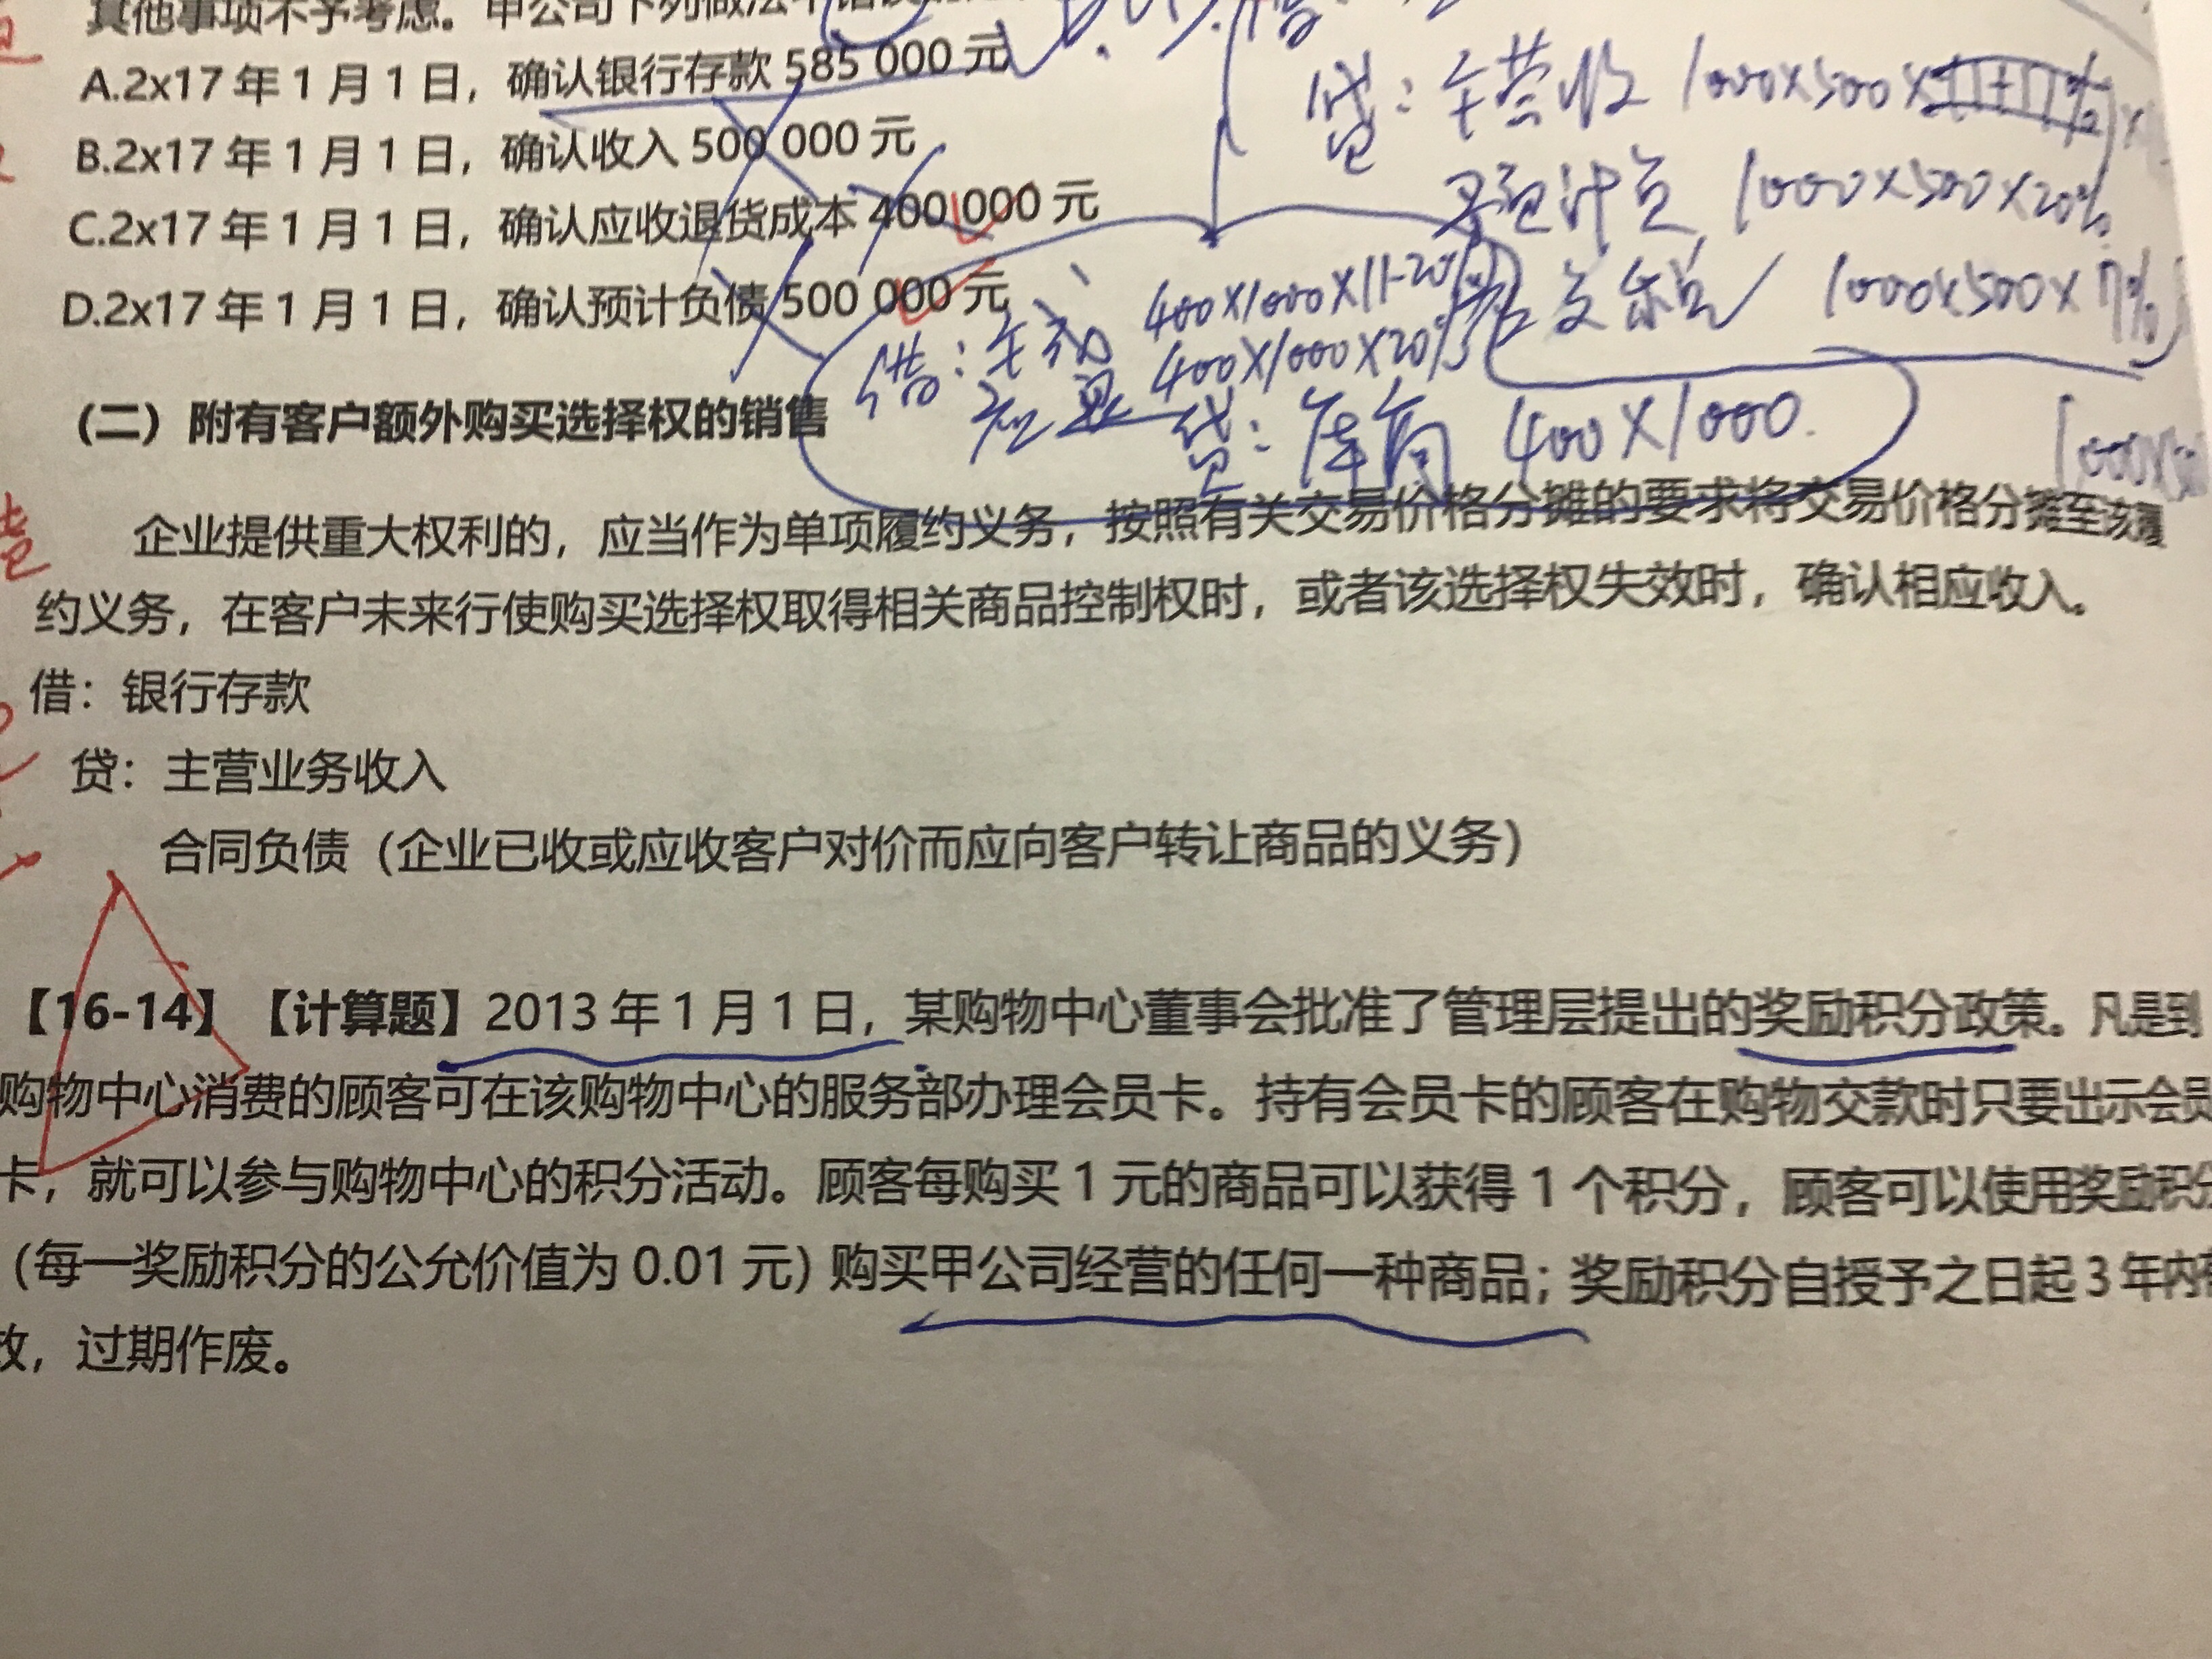 其他事项不予考虑。甲公司下列做法中错误的
A.2x17年1月1日，确认银行存款 585 000 元
B.2x17年1月1日，确认收入 500 000 元
C.2x17年1月1日，确认应收退货成本 400 000 元
D.2x17年1月1日，确认预计负债 500 000 元
贷：主营收 1000×500×
预计负 1000×500×20%
交税 1000×500×17%
借：主成 400×1000×(1-20%)
400×1000×20%
贷：库商 400×1000
（二）附有客户额外购买选择权的销售
企业提供重大权利的，应当作为单项履约义务，按照有关交易价格分摊的要求将交易价格分摊至该履
约义务，在客户未来行使购买选择权取得相关商品控制权时，或者该选择权失效时，确认相应收入。
借：银行存款
贷：主营业务收入
合同负债（企业已收或应收客户对价而应向客户转让商品的义务）
【16-14】【计算题】2013年1月1日，某购物中心董事会批准了管理层提出的奖励积分政策。凡是到
购物中心消费的顾客可在该购物中心的服务部办理会员卡。持有会员卡的顾客在购物交款时只要出示会员
卡，就可以参与购物中心的积分活动。顾客每购买1元的商品可以获得1个积分，顾客可以使用奖励积分
（每一奖励积分的公允价值为0.01元）购买甲公司经营的任何一种商品；奖励积分自授予之日起3年内有
效，过期作废。